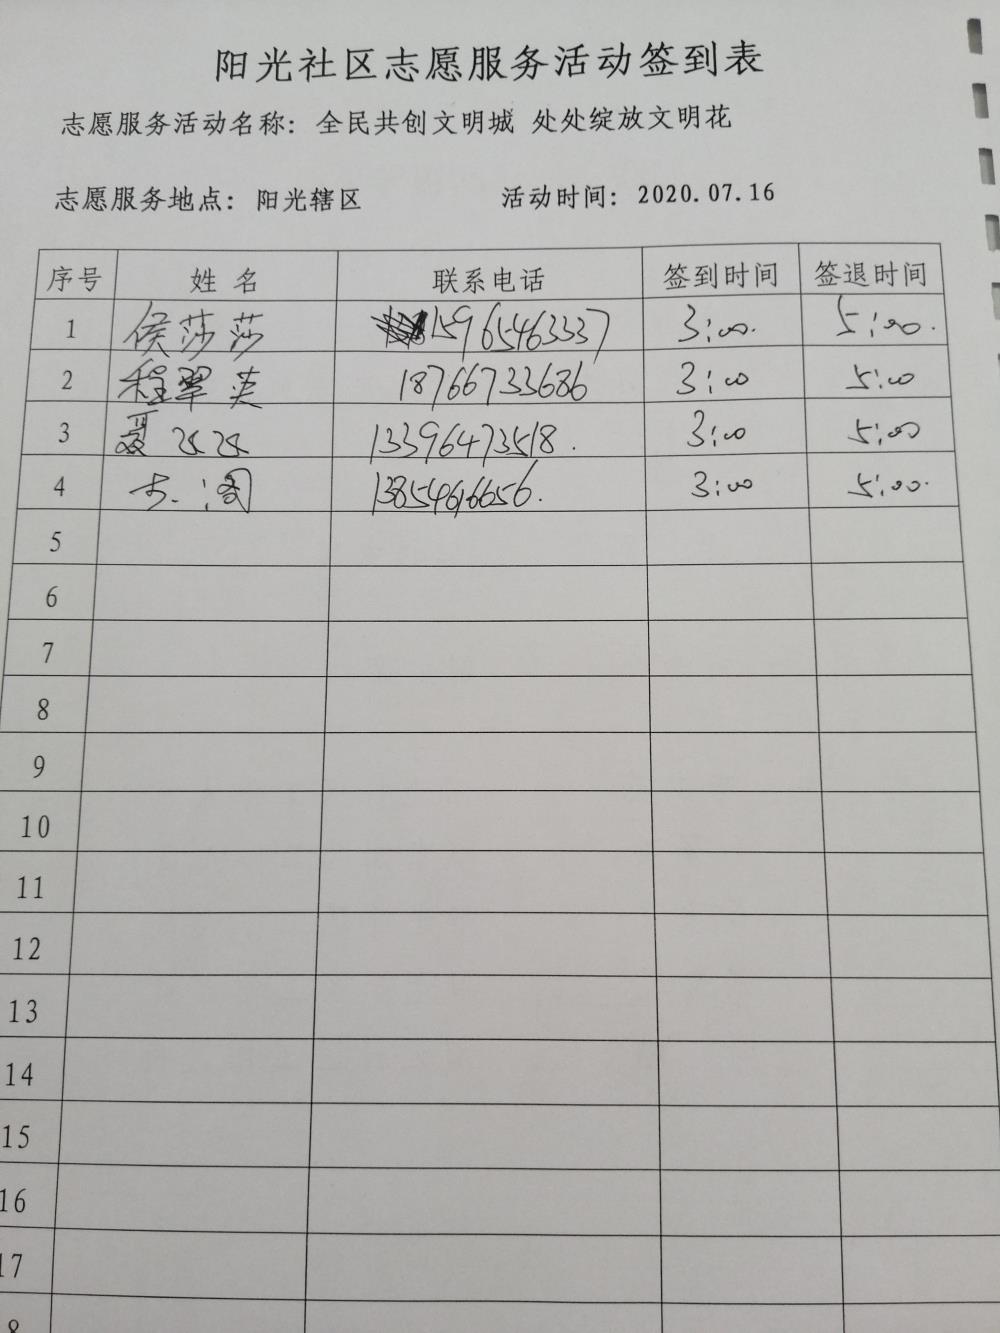 阳光社区志愿服务活动签到表
志愿服务活动名称：全民共创文明城 处处绽放文明花
志愿服务地点：阳光辖区 活动时间：2020.07.16
序号 姓名 联系电话 签到时间 签退时间
1 侯莎莎 15965463337 3:00. 5:00.
2 程翠英 18766733686 3:00 5:00
3 13396473518. 3:00 5:00
4 13854616656. 3:00 5:00.
5
6
7
8
9
10
11
12
13
14
15
16
17